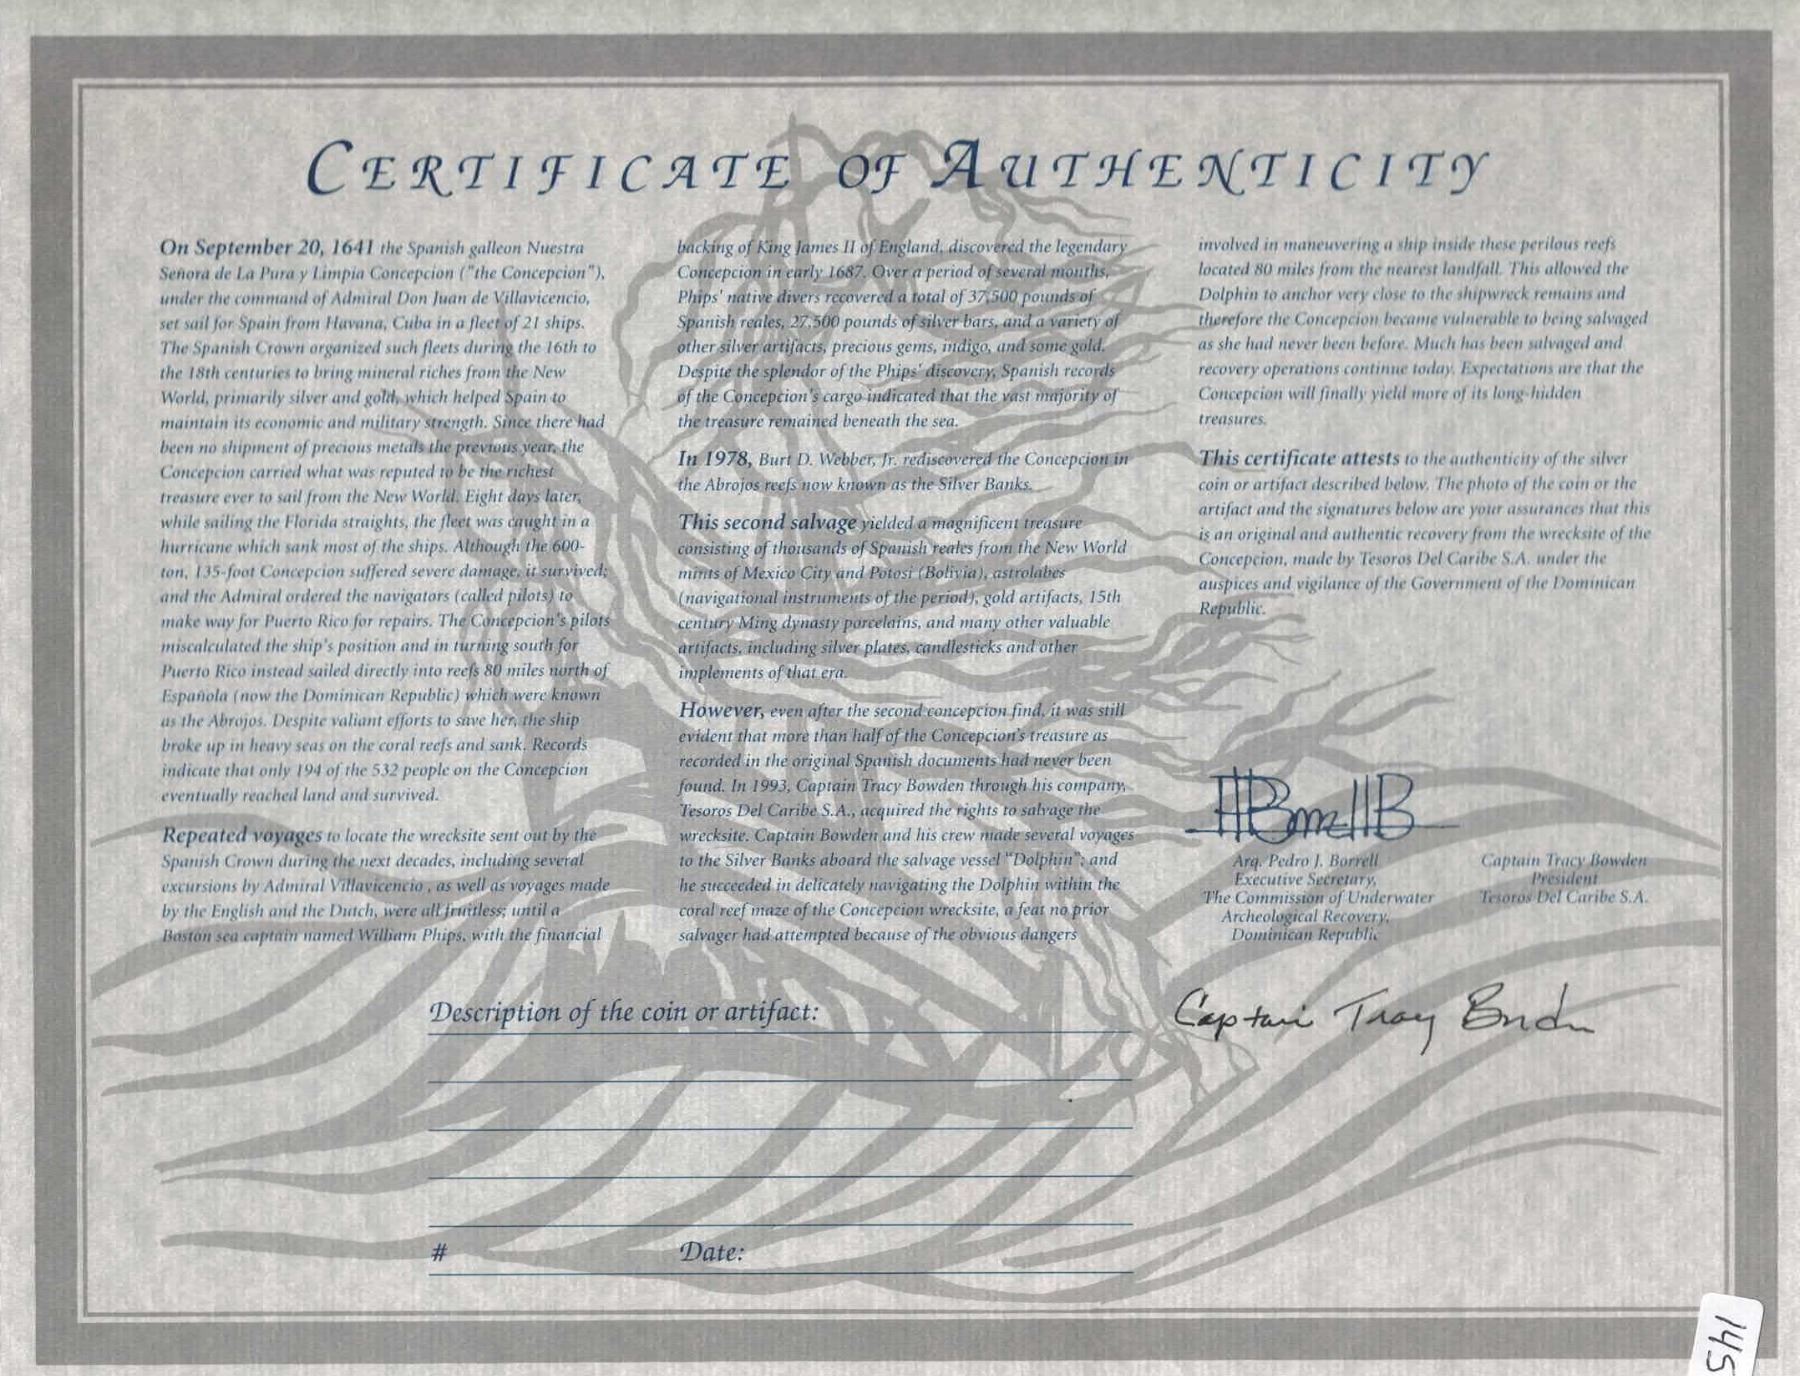 CERTIFICATE OF AUTHENTICITY
On September 20, 1641 the Spanish galleon Nuestra
Señora de La Pura y Limpia Concepcion ("the Concepcion"),
under the command of Admiral Don Juan de Villavicencio,
set sail for Spain from Havana, Cuba in a fleet of 21 ships.
The Spanish Crown organized such fleets during the 16th to
the 18th centuries to bring mineral riches from the New
World, primarily silver and gold, which helped Spain to
maintain its economic and military strength. Since there had
been no shipment of precious metals the previous year, the
Concepcion carried what was reputed to be the richest
treasure ever to sail from the New World. Eight days later,
while sailing the Florida straights, the fleet was caught in a
hurricane which sank most of the ships. Although the 600-
ton, 135-foot Concepcion suffered severe damage, it survived;
and the Admiral ordered the navigators (called pilots) to
make way for Puerto Rico for repairs. The Concepcion's pilots
miscalculated the ship's position and in turning south for
Puerto Rico instead sailed directly into reefs 80 miles north of
Española (now the Dominican Republic) which were known
as the Abrojos. Despite valiant efforts to save her, the ship
broke up in heavy seas on the coral reefs and sank. Records
indicate that only 194 of the 532 people on the Concepcion
eventually reached land and survived.
Repeated voyages to locate the wrecksite sent out by the
Spanish Crown during the next decades, including several
excursions by Admiral Villavicencio , as well as voyages made
by the English and the Dutch, were all fruitless; until a
Boston sea captain named William Phips, with the financial
backing of King James II of England, discovered the legendary
Concepcion in early 1687. Over a period of several months,
Phips' native divers recovered a total of 37,500 pounds of
Spanish reales, 27,500 pounds of silver bars, and a variety of
other silver artifacts, precious gems, indigo, and some gold.
Despite the splendor of the Phips' discovery, Spanish records
of the Concepcion's cargo indicated that the vast majority of
the treasure remained beneath the sea.
In 1978, Burt D. Webber, Jr. rediscovered the Concepcion in
the Abrojos reefs now known as the Silver Banks.
This second salvage yielded a magnificent treasure
consisting of thousands of Spanish reales from the New World
mints of Mexico City and Potosi (Bolivia), astrolabes
(navigational instruments of the period), gold artifacts, 15th
century Ming dynasty porcelains, and many other valuable
artifacts, including silver plates, candlesticks and other
implements of that era.
However, even after the second concepcion find, it was still
evident that more than half of the Concepcion's treasure as
recorded in the original Spanish documents had never been
found. In 1993, Captain Tracy Bowden through his company,
Tesoros Del Caribe S.A., acquired the rights to salvage the
wrecksite. Captain Bowden and his crew made several voyages
to the Silver Banks aboard the salvage vessel "Dolphin"; and
he succeeded in delicately navigating the Dolphin within the
coral reef maze of the Concepcion wrecksite, a feat no prior
salvager had attempted because of the obvious dangers
involved in maneuvering a ship inside these perilous reefs
located 80 miles from the nearest landfall. This allowed the
Dolphin to anchor very close to the shipwreck remains and
therefore the Concepcion became vulnerable to being salvaged
as she had never been before. Much has been salvaged and
recovery operations continue today. Expectations are that the
Concepcion will finally yield more of its long-hidden
treasures.
This certificate attests to the authenticity of the silver
coin or artifact described below. The photo of the coin or the
artifact and the signatures below are your assurances that this
is an original and authentic recovery from the wrecksite of the
Concepcion, made by Tesoros Del Caribe S.A. under the
auspices and vigilance of the Government of the Dominican
Republic.
Arq. Pedro J. Borrell
Executive Secretary,
The Commission of Underwater
Archeological Recovery,
Dominican Republic
Captain Tracy Bowden
President
Tesoros Del Caribe S.A.
Captain Tracy Bowden
Description of the coin or artifact:
# Date:
145